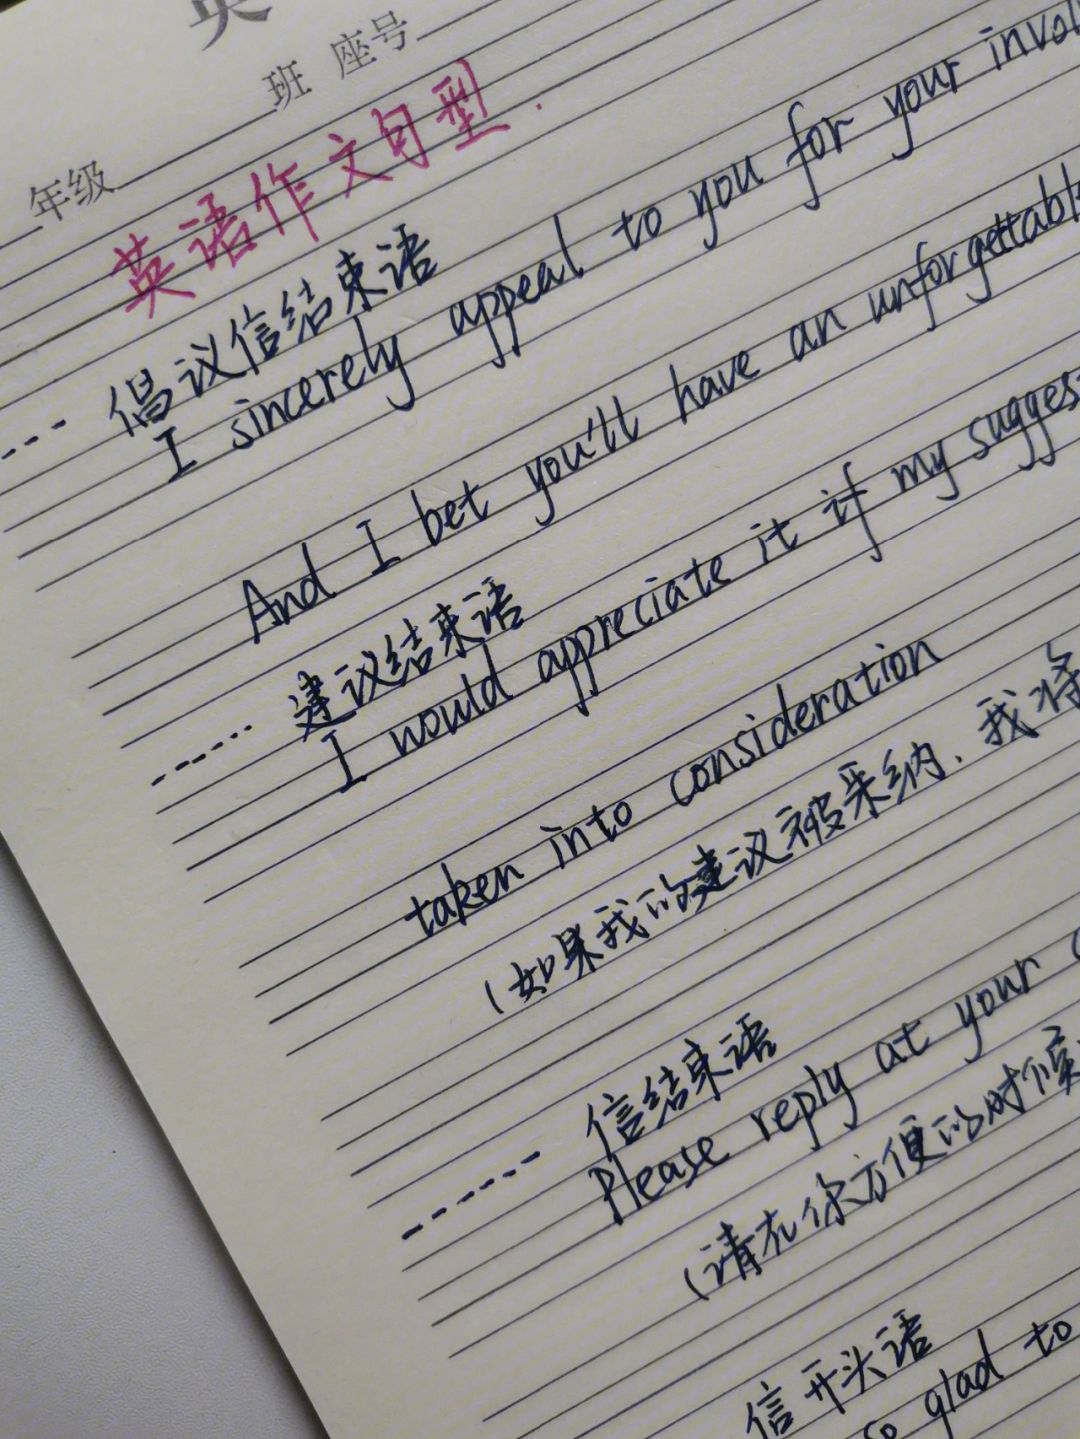 英
年级 班 座号
英语作文句型.
倡议信结束语
I sincerely appeal to you for your
And I bet you'll have an
建议结束语
I would appreciate it if my
taken into consideration
(如果我的建议被采纳,我将
信结束语
Please reply at your
(请在你方便的时候
信开头语
so glad to